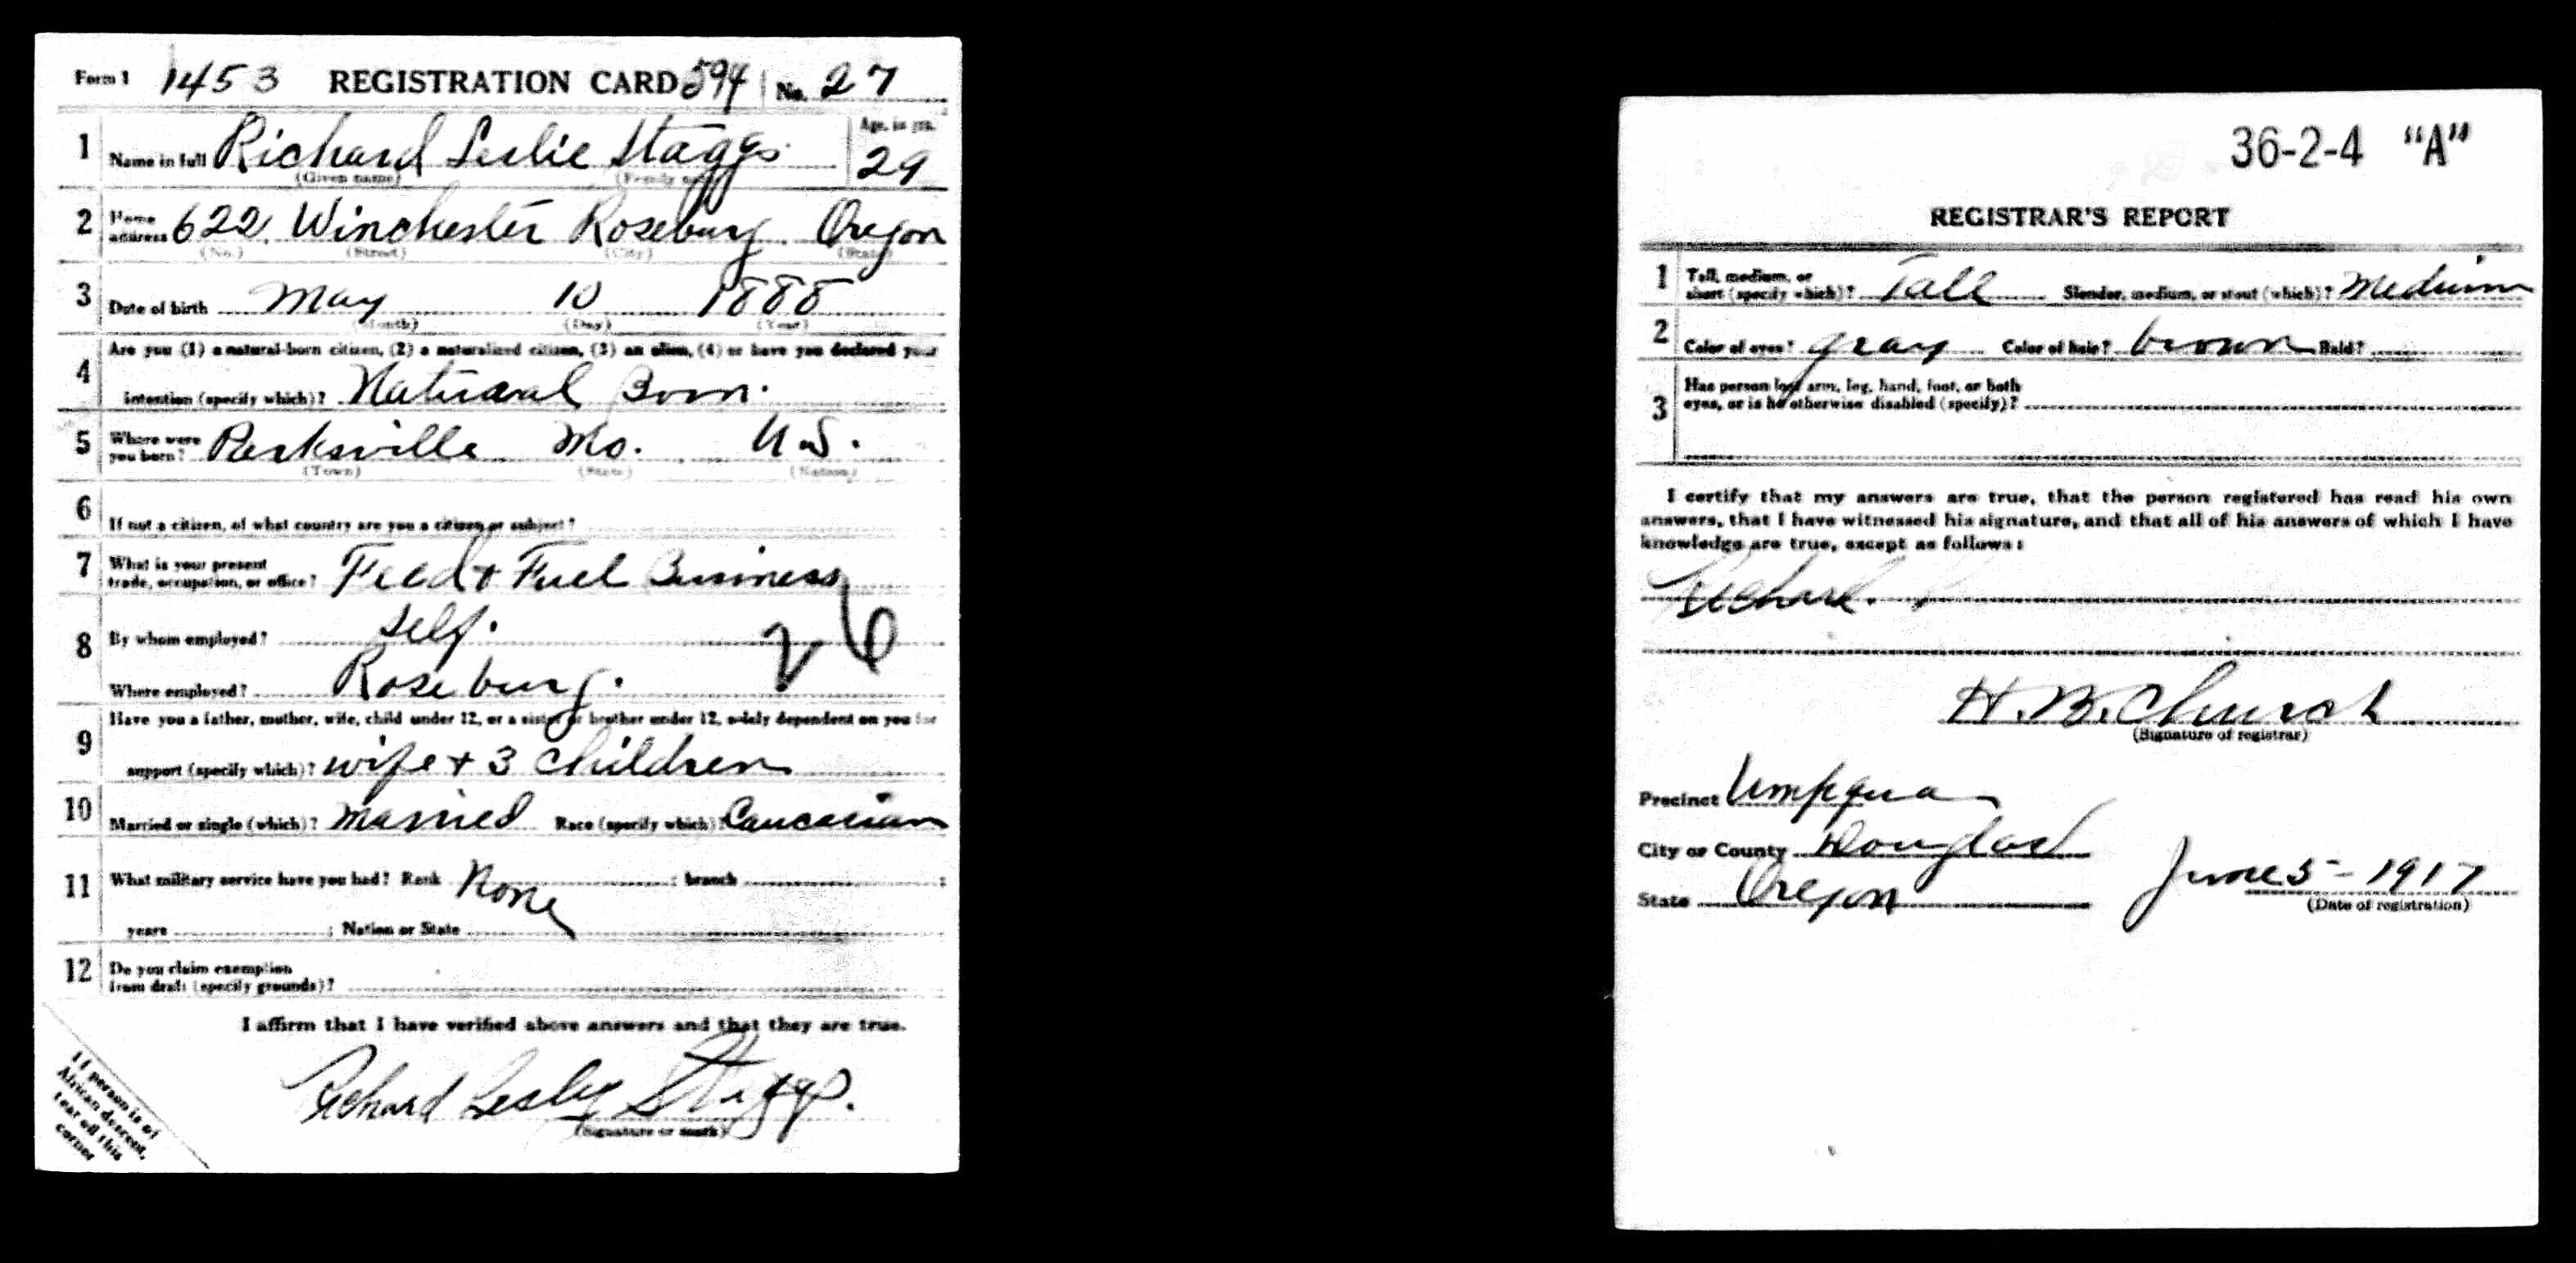 Form 1 1453 REGISTRATION CARD 594 No. 27
1 Name in full Richard Leslie Staggs Age, in yrs. 29
(Given name) (Family name)
2 Home address 622 Winchester Roseburg Oregon
(No.) (Street) (City) (State)
3 Date of birth May 10 1888
(Month) (Day) (Year)
4 Are you (1) a natural-born citizen, (2) a naturalized citizen, (3) an alien, (4) or have you declared your
intention (specify which)? Natural Born.
5 Where were you born? Parksville Mo. U.S.
(Town) (State) (Nation)
6 If not a citizen, of what country are you a citizen or subject?
7 What is your present trade, occupation, or office? Feed + Fuel Business
8 By whom employed? Self.
26
Where employed? Roseburg.
9 Have you a father, mother, wife, child under 12, or a sister or brother under 12, solely dependent on you for
support (specify which)? wife + 3 children
10 Married or single (which)? married Race (specify which)? Caucasian
11 What military service have you had? Rank None ; branch ;
years ; Nation or State
12 Do you claim exemption
from draft (specify grounds)?
I affirm that I have verified above answers and that they are true.
Richard Lesly Staggs.
(Signature or mark)
If person is of
African descent,
tear off this
corner
36-2-4 "A"
REGISTRAR'S REPORT
1 Tall, medium, or
short (specify which)? Tall Slender, medium, or stout (which)? Medium
2 Color of eyes? gray Color of hair? brown Bald?
3 Has person lost arm, leg, hand, foot, or both
eyes, or is he otherwise disabled (specify)?
I certify that my answers are true, that the person registered has read his own
answers, that I have witnessed his signature, and that all of his answers of which I have
knowledge are true, except as follows:
Richard.
H. B. Church
(Signature of registrar)
Precinct Umpqua
City or County Douglas
State Oregon June 5 - 1917
(Date of registration)